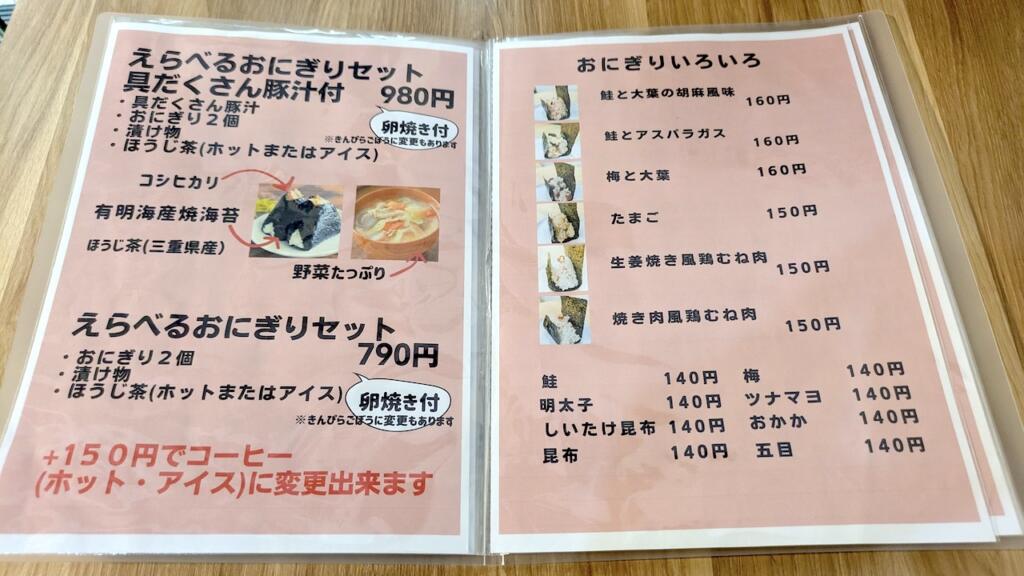 えらべるおにぎりセット
具だくさん豚汁付 980円
・具だくさん豚汁
・おにぎり２個
・漬け物
・ほうじ茶(ホットまたはアイス)
卵焼き付
※きんぴらごぼうに変更もあります
コシヒカリ
有明海産焼海苔
ほうじ茶(三重県産)
野菜たっぷり
えらべるおにぎりセット
790円
・おにぎり２個
・漬け物
・ほうじ茶(ホットまたはアイス)
卵焼き付
※きんぴらごぼうに変更もあります
+１５０円でコーヒー
(ホット・アイス)に変更出来ます
おにぎりいろいろ
鮭と大葉の胡麻風味 160円
鮭とアスパラガス 160円
梅と大葉 160円
たまご 150円
生姜焼き風鶏むね肉 150円
焼き肉風鶏むね肉 150円
鮭 140円 梅 140円
明太子 140円 ツナマヨ 140円
しいたけ昆布 140円 おかか 140円
昆布 140円 五目 140円